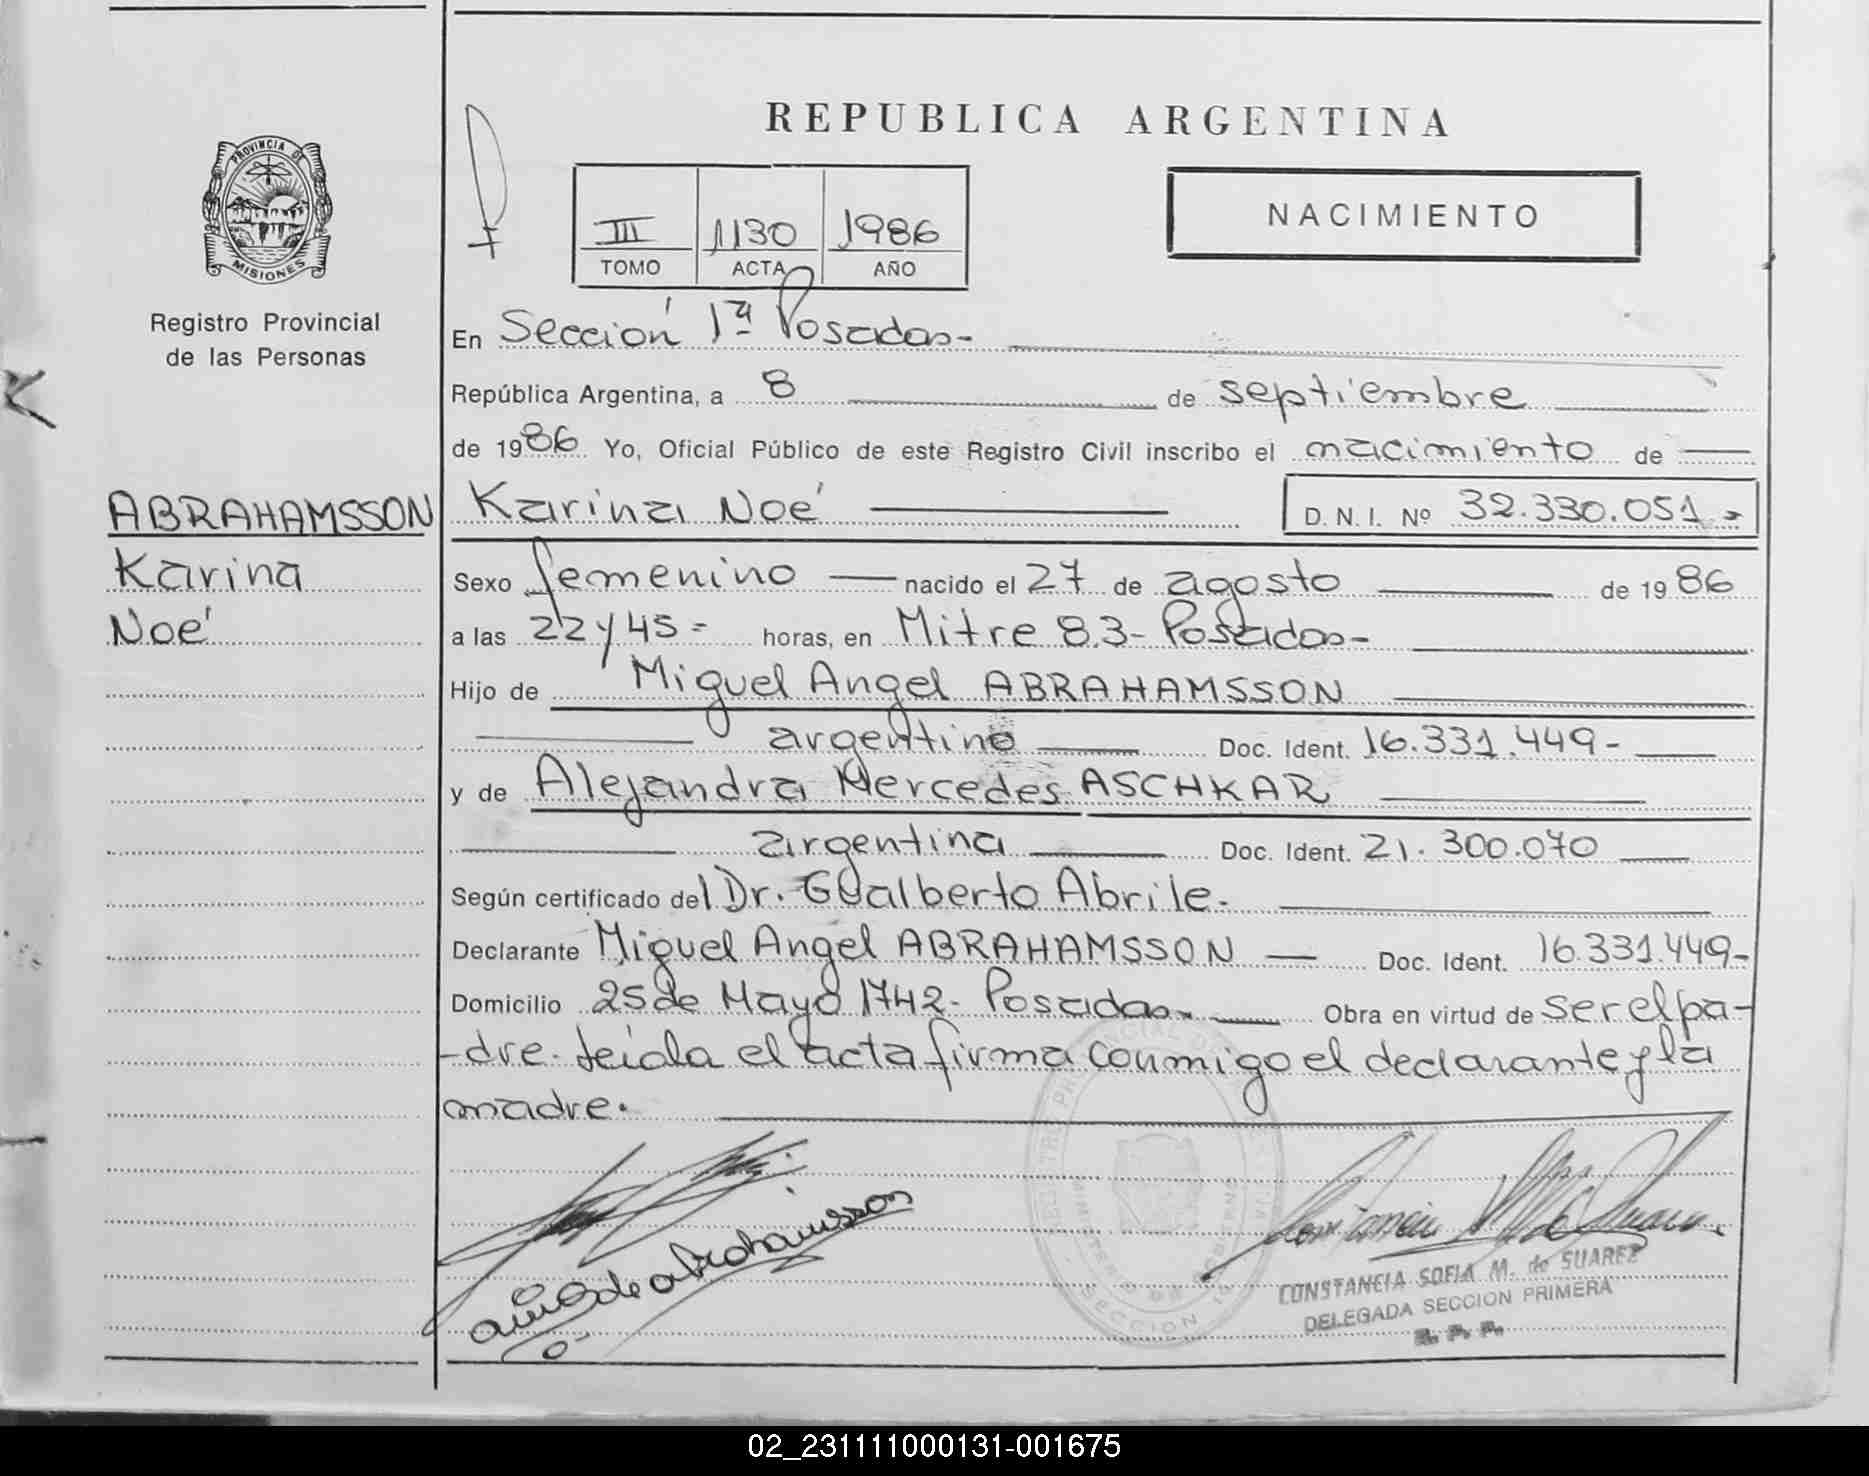 REPUBLICA ARGENTINA
PROVINCIA DE
MISIONES
Registro Provincial
de las Personas
III 1130 1986
TOMO ACTA AÑO
NACIMIENTO
En Sección 1ª Posadas-
República Argentina, a 8 de septiembre
de 1986 Yo, Oficial Público de este Registro Civil inscribo el nacimiento de
ABRAHAMSSON
Karina
Noé
Karina Noé D. N. I. Nº 32.330.051-
Sexo femenino nacido el 27 de agosto de 1986
a las 22 y 45= horas, en Mitre 83- Posadas-
Hijo de Miguel Angel ABRAHAMSSON
argentino Doc. Ident. 16.331.449-
y de Alejandra Mercedes ASCHKAR
argentina Doc. Ident. 21.300.070
Según certificado del Dr. Gualberto Abrile.
Declarante Miguel Angel ABRAHAMSSON Doc. Ident. 16.331.449-
Domicilio 25 de Mayo 1742- Posadas- Obra en virtud de ser el pa-
-dre. leída el acta firma conmigo el declarante y la
madre.
de abrahamsson
CONSTANCIA SOFIA M. de SUAREZ
DELEGADA SECCION PRIMERA
R. P. P.
02_231111000131-001675